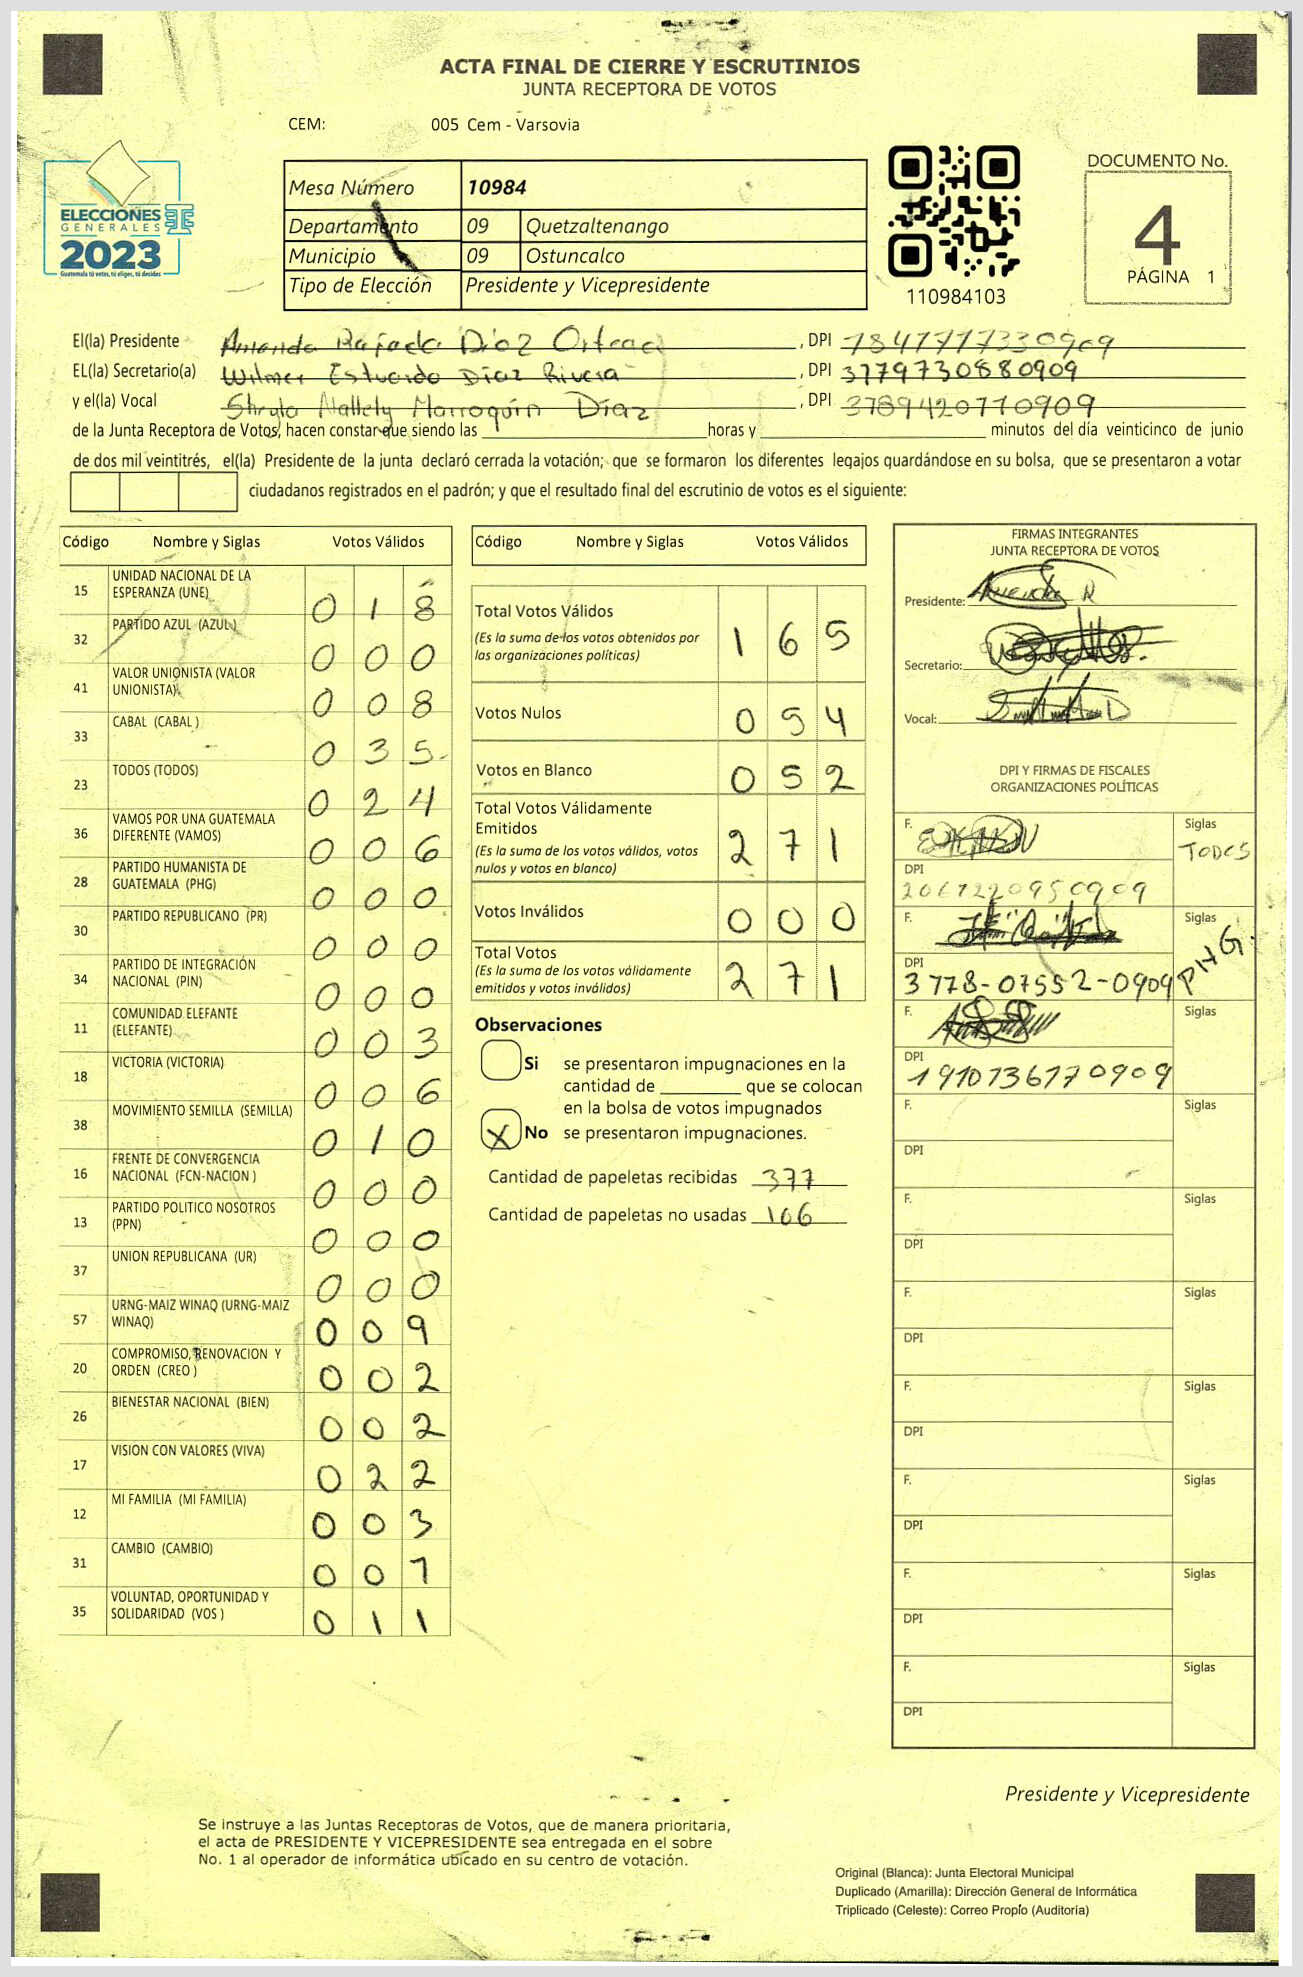 ACTA FINAL DE CIERRE Y ESCRUTINIOS
JUNTA RECEPTORA DE VOTOS
CEM: 005 Cem - Varsovia
ELECCIONES
GENERALES
2023
Guatemala tú votas, tú eliges, tú decides
Mesa Número 10984
Departamento 09 Quetzaltenango
Municipio 09 Ostuncalco
Tipo de Elección Presidente y Vicepresidente
110984103
DOCUMENTO No.
4
PÁGINA 1
El(la) Presidente Amanda Rafaela Díaz , DPI 1847777330909
EL(la) Secretario(a) Wilmer Estuardo Díaz Rivera , DPI 3779730880909
y el(la) Vocal Nallely Marroquín Díaz , DPI 3789420770909
de la Junta Receptora de Votos, hacen constar que siendo las horas y minutos del día veinticinco de junio
de dos mil veintitrés, el(la) Presidente de la junta declaró cerrada la votación; que se formaron los diferentes legajos guardándose en su bolsa, que se presentaron a votar
ciudadanos registrados en el padrón; y que el resultado final del escrutinio de votos es el siguiente:
Código Nombre y Siglas Votos Válidos
15 UNIDAD NACIONAL DE LA ESPERANZA (UNE) 0 1 8
32 PARTIDO AZUL (AZUL) 0 0 0
41 VALOR UNIONISTA (VALOR UNIONISTA) 0 0 8
33 CABAL (CABAL ) 0 3 5
23 TODOS (TODOS) 0 2 4
36 VAMOS POR UNA GUATEMALA DIFERENTE (VAMOS) 0 0 6
28 PARTIDO HUMANISTA DE GUATEMALA (PHG) 0 0 0
30 PARTIDO REPUBLICANO (PR) 0 0 0
34 PARTIDO DE INTEGRACIÓN NACIONAL (PIN) 0 0 0
11 COMUNIDAD ELEFANTE (ELEFANTE) 0 0 3
18 VICTORIA (VICTORIA) 0 0 6
38 MOVIMIENTO SEMILLA (SEMILLA) 0 1 0
16 FRENTE DE CONVERGENCIA NACIONAL (FCN-NACION ) 0 0 0
13 PARTIDO POLITICO NOSOTROS (PPN) 0 0 0
37 UNION REPUBLICANA (UR) 0 0 0
57 URNG-MAIZ WINAQ (URNG-MAIZ WINAQ) 0 0 9
20 COMPROMISO, RENOVACION Y ORDEN (CREO ) 0 0 2
26 BIENESTAR NACIONAL (BIEN) 0 0 2
17 VISION CON VALORES (VIVA) 0 2 2
12 MI FAMILIA (MI FAMILIA) 0 0 3
31 CAMBIO (CAMBIO) 0 0 7
35 VOLUNTAD, OPORTUNIDAD Y SOLIDARIDAD (VOS ) 0 1 1
Código Nombre y Siglas Votos Válidos
Total Votos Válidos 1 6 5
(Es la suma de los votos obtenidos por
las organizaciones políticas)
Votos Nulos 0 5 4
Votos en Blanco 0 5 2
Total Votos Válidamente
Emitidos 2 7 1
(Es la suma de los votos válidos, votos
nulos y votos en blanco)
Votos Inválidos 0 0 0
Total Votos 2 7 1
(Es la suma de los votos válidamente
emitidos y votos inválidos)
Observaciones
Si se presentaron impugnaciones en la
cantidad de que se colocan
en la bolsa de votos impugnados
X No se presentaron impugnaciones.
Cantidad de papeletas recibidas 377
Cantidad de papeletas no usadas 106
FIRMAS INTEGRANTES
JUNTA RECEPTORA DE VOTOS
Presidente:
Secretario:
Vocal:
DPI Y FIRMAS DE FISCALES
ORGANIZACIONES POLÍTICAS
F. Siglas TODOS
DPI 2067220950909
F. Siglas PHG.
DPI 3778-07552-0909
F. Siglas
DPI 1910736170909
F. Siglas
DPI
F. Siglas
DPI
F. Siglas
DPI
F. Siglas
DPI
F. Siglas
DPI
F. Siglas
DPI
F. Siglas
DPI
Presidente y Vicepresidente
Se instruye a las Juntas Receptoras de Votos, que de manera prioritaria,
el acta de PRESIDENTE Y VICEPRESIDENTE sea entregada en el sobre
No. 1 al operador de informática ubicado en su centro de votación.
Original (Blanca): Junta Electoral Municipal
Duplicado (Amarilla): Dirección General de Informática
Triplicado (Celeste): Correo Propio (Auditoría)